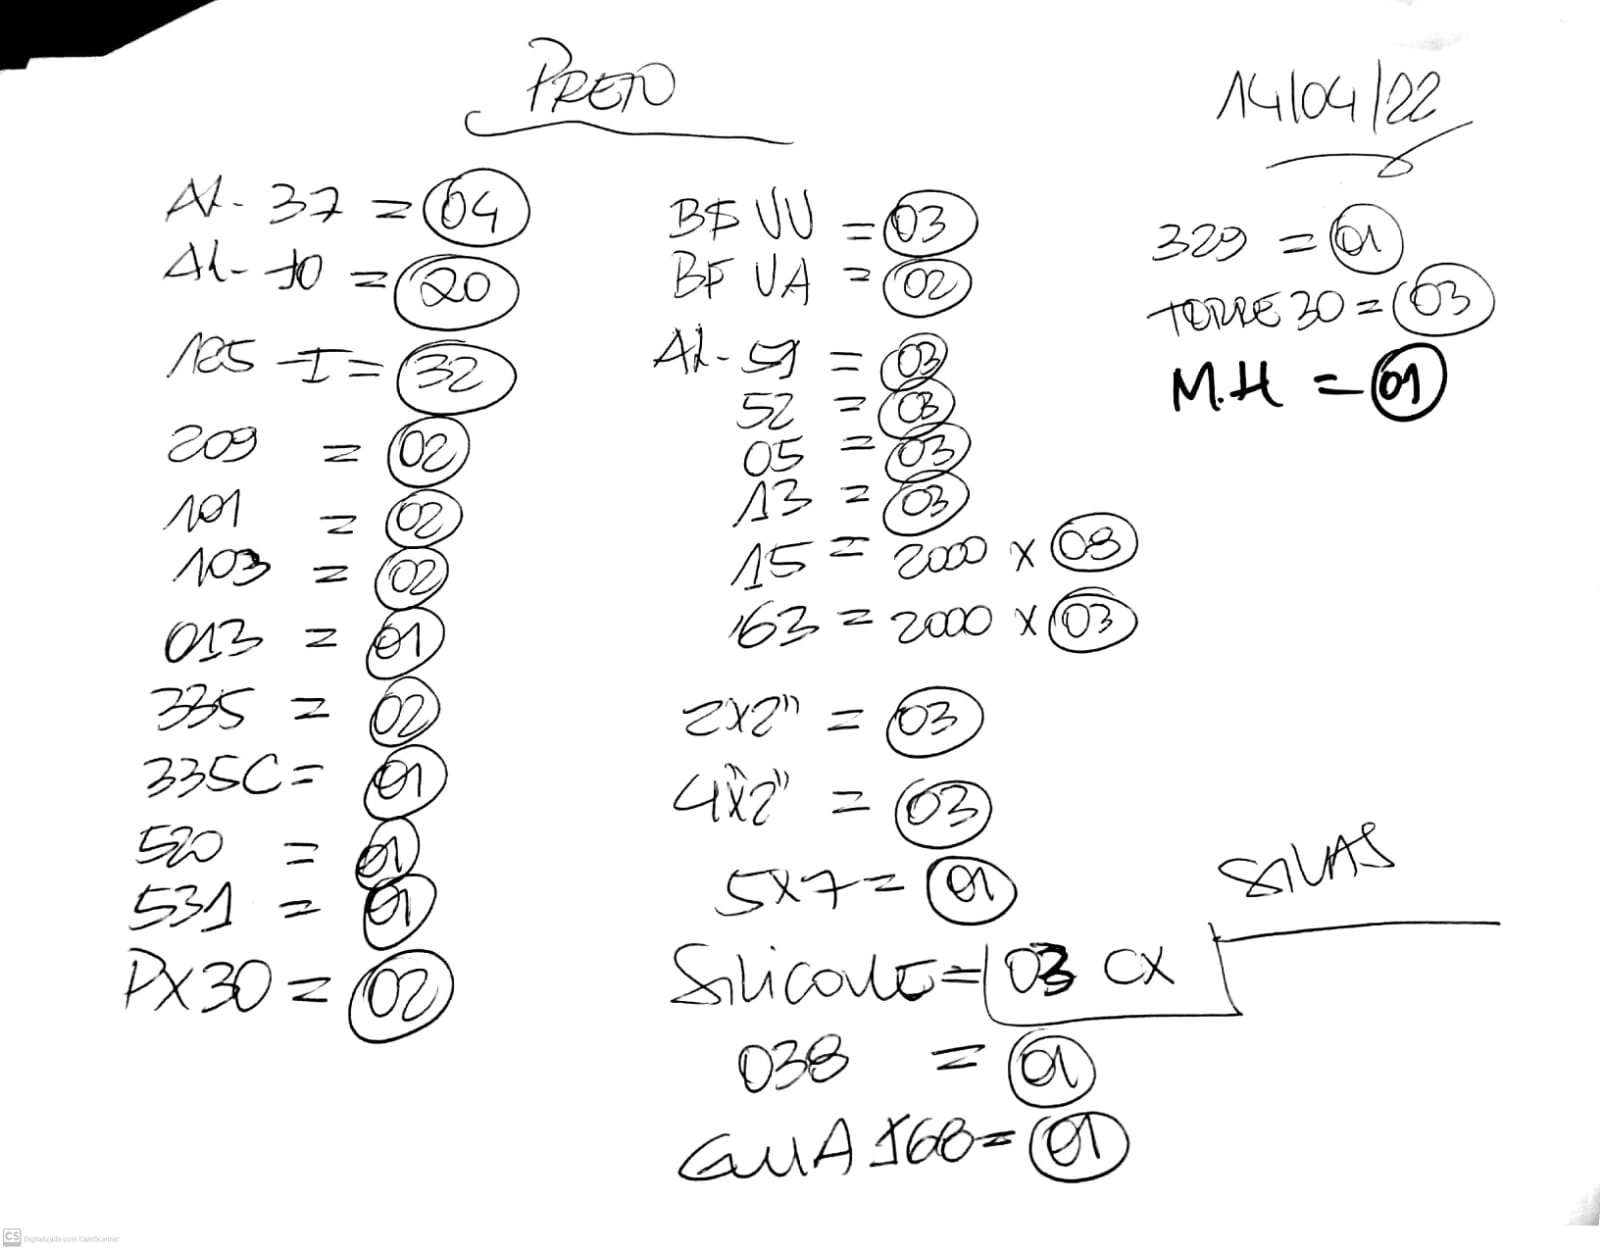 PRETO
14/04/22
AL-37 = 04
AL-10 = 20
185-I = 32
209 = 02
101 = 02
103 = 02
013 = 01
335 = 02
335C = 01
520 = 01
531 = 01
PX30 = 02
BF VV = 03
BF VA = 02
AL-51 = 03
52 = 03
05 = 03
13 = 03
15 = 2000 X 03
63 = 2000 X 03
2X2" = 03
4"X2" = 03
5X7 = 01
SiliconE = 03 CX
038 = 01
GUIA 168 = 01
329 = 01
TORRE 30 = 03
M.H = 01
SILVAS
CS Digitalizado com CamScanner